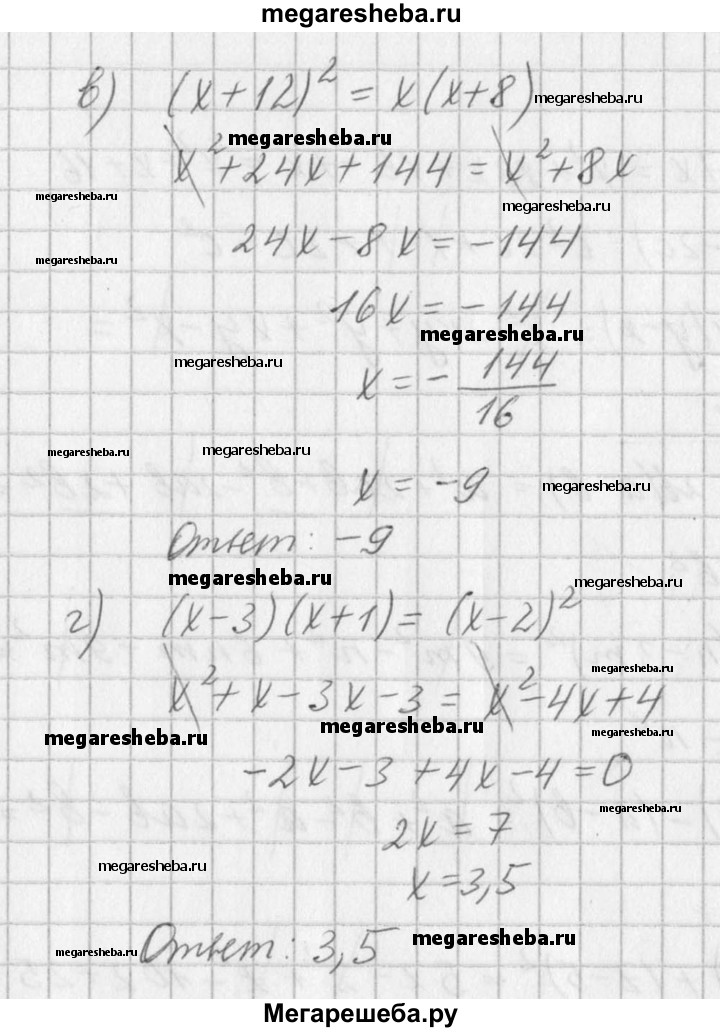 megaresheba.ru
в) (x+12)² = x(x+8) megaresheba.ru
megaresheba.ru
x²+24x+144 = x²+8x
megaresheba.ru
megaresheba.ru
24x-8x=-144
megaresheba.ru
16x=-144
megaresheba.ru
megaresheba.ru
x=-144/16
megaresheba.ru
megaresheba.ru
x = -9 megaresheba.ru
Ответ: -9
megaresheba.ru
megaresheba.ru
г) (x-3)(x+1)= (x-2)²
megaresheba.ru
x²+x-3x-3= x²-4x+4
megaresheba.ru
megaresheba.ru
megaresheba.ru
-2x-3+4x-4=0
megaresheba.ru
2x=7
megaresheba.ru
x=3,5
Ответ: 3,5
megaresheba.ru
megaresheba.ru
Мегарешеба.ру